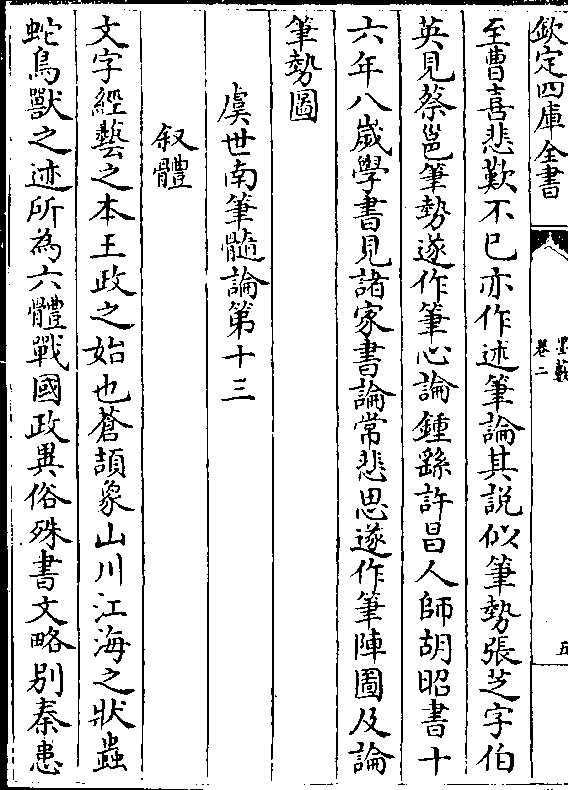 欽定四庫全書
墨藪
卷二
五
至曹喜悲歎不已亦作述筆論其説似筆勢張芝字伯
英見蔡邕筆勢遂作筆心論鍾繇許昌人師胡昭書十
六年八歲學書見諸家書論常悲思遂作筆陣圖及論
筆勢圖
虞世南筆髓論第十三
叙體
文字經藝之本王政之始也蒼頡象山川江海之狀蟲
蛇鳥獸之迹所為六體戰國政異俗殊書文略别秦患